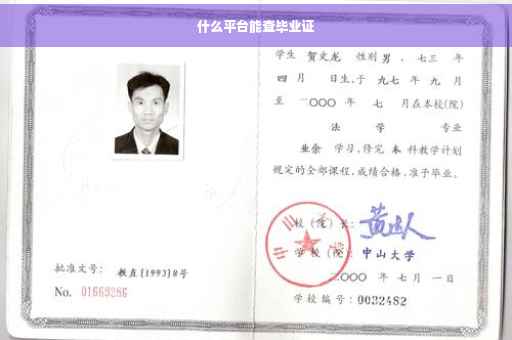 什么平台能查毕业证
学生 贺文龙 性别 男 、七三 年
四 月 日生,于 九七 年 九 月
至 二〇〇〇 年 七 月在本校(院)
法 学 专业
业余 学习,修完 本 科教学计划
规定的全部课程,成绩合格,准予毕业。
校(院)长:
学校(院): 中山大学
二〇〇〇 年 七 月 一 日
批准文号: 教直[1993]8号
No. 01663286
学校编号: 0032482